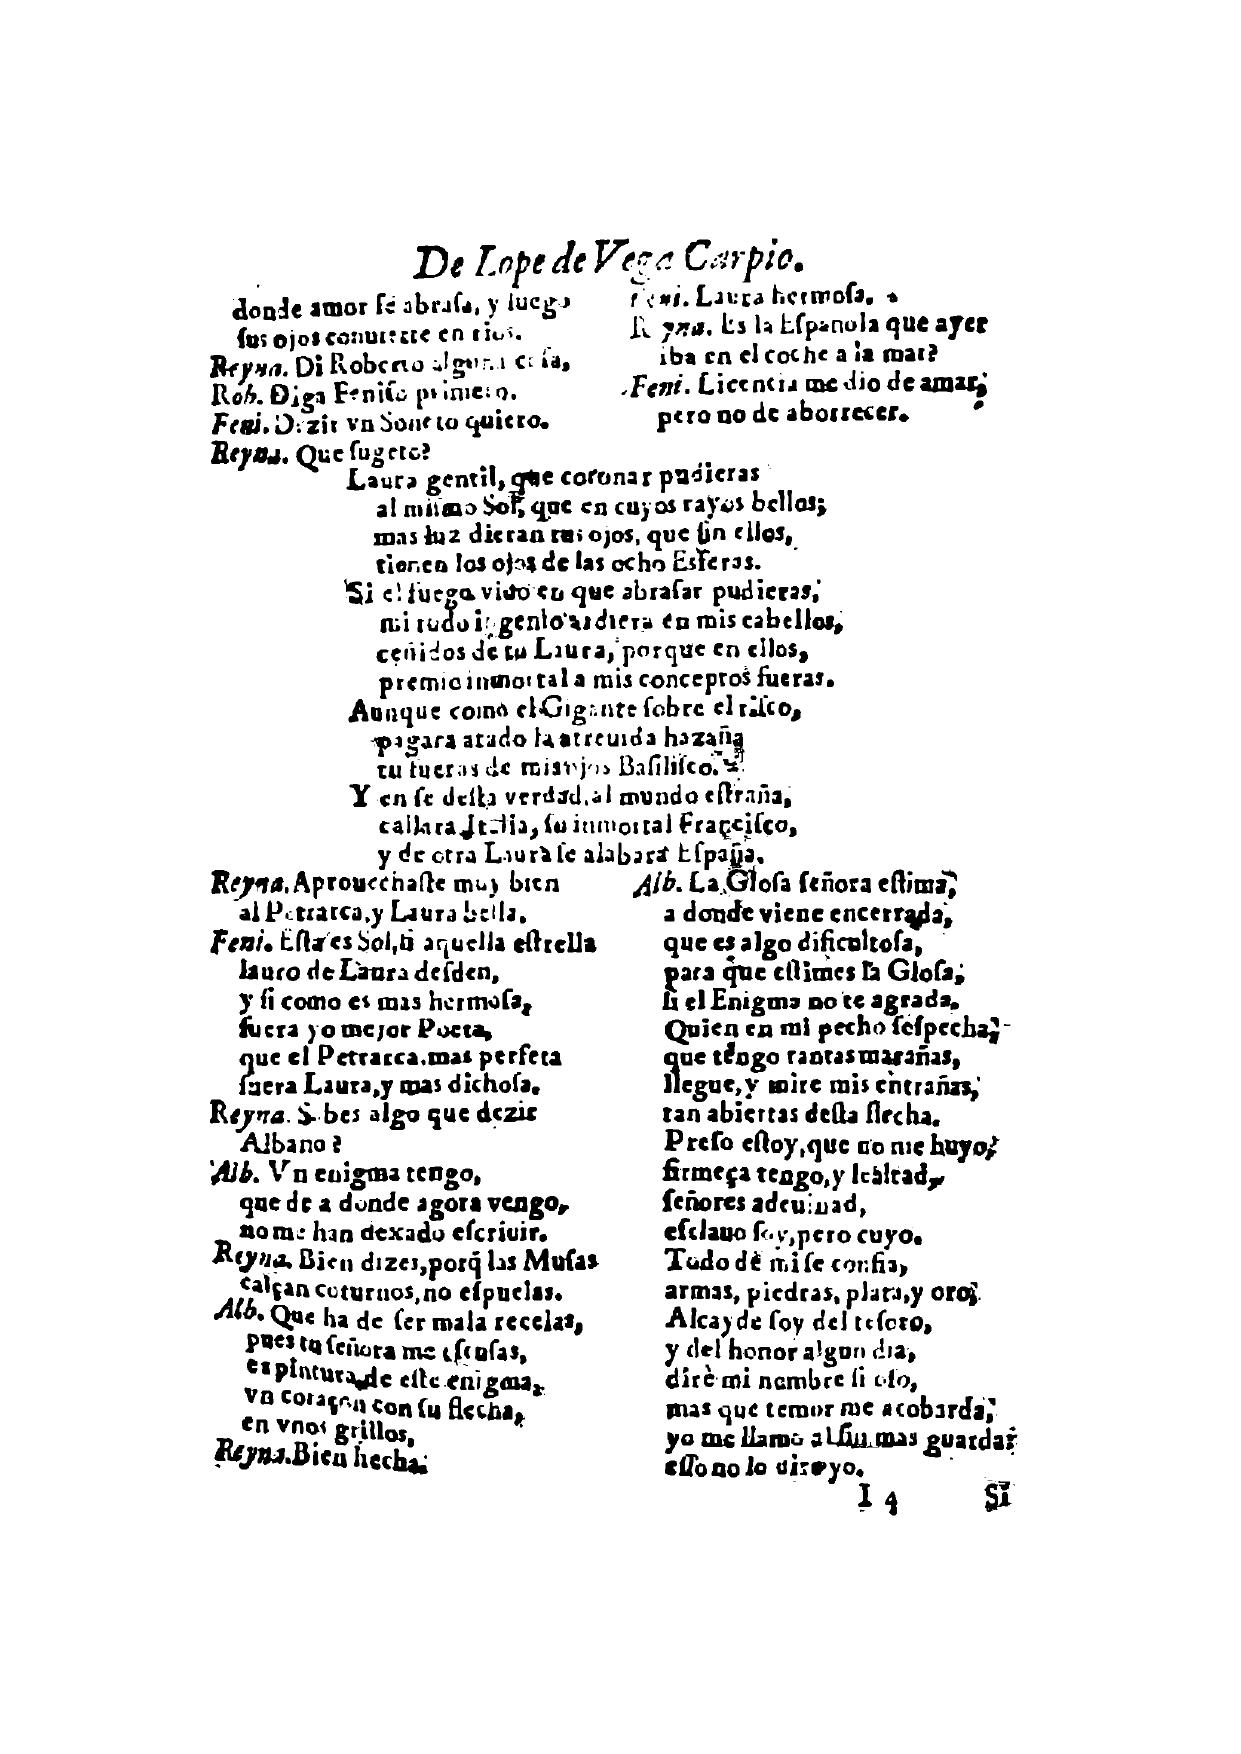 De Lope de Vega Carpio.
donde amor se abrasa, y luego
sus ojos conuierte en rios.
Reyna. Di Roberto alguna cosa,
Rob. Diga Feniso primero.
Feni. Dezir vn Soneto quiero.
Reyna. Que sugeto?
Feni. Laura hermosa.
Reyna. Es la Española que ayer
iba en el coche a la mar?
Feni. Licencia me dio de amar,
pero no de aborrecer.
Laura gentil, que coronar pudieras
al mismo Sol, que en cuyos rayos bellos;
mas luz dieran tus ojos, que sin ellos,
tienen los ojos de las ocho Esferas.
Si el fuego vido en que abrasar pudieras,
mi rudo ingenio ardiera en mis cabellos,
ceñidos de tu Laura, porque en ellos,
premio inmortal a mis conceptos fueras.
Aunque como el Gigante sobre el risco,
pagara atado la atreuida hazaña
tu fueras de mis ojos Basilisco.
Y en fe desta verdad, al mundo estraña,
callara Italia, su inmortal Francisco,
y de otra Laura se alabara España.
Reyna. Aprouechaste muy bien
al Petrarca, y Laura bella.
Feni. Esta es Sol, si aquella estrella
lauro de Laura desden,
y si como es mas hermosa,
fuera yo mejor Poeta,
que el Petrarca, mas perfeta
fuera Laura, y mas dichosa.
Reyna. Sabes algo que dezir
Albano?
Alb. Vn enigma tengo,
que de a donde agora vengo,
no me han dexado escriuir.
Reyna. Bien dizes, porq̃ las Musas
calçan coturnos, no espuelas.
Alb. Que ha de ser mala recelas,
pues tu señora me escusas,
es pintura de este enigma,
vn coraçon con su flecha,
en vnos grillos,
Reyna. Bien hecha.
Alb. La Glosa señora estima,
a donde viene encerrada,
que es algo dificultosa,
para que estimes la Glosa,
si el Enigma no te agrada.
Quien en mi pecho sospecha,
que tengo tantas marañas,
llegue, y mire mis entrañas,
tan abiertas desta flecha.
Preso estoy, que no me huyo,
firmeça tengo, y lealtad,
señores adeuinad,
esclauo soy, pero cuyo.
Todo de mi se confia,
armas, piedras, plata, y oro,
Alcayde soy del tesoro,
y del honor algun dia,
dirè mi nombre si oso,
mas que temor me acobarda,
yo me llamo alfin, mas guarda,
esso no lo dirè yo.
I 4 Si